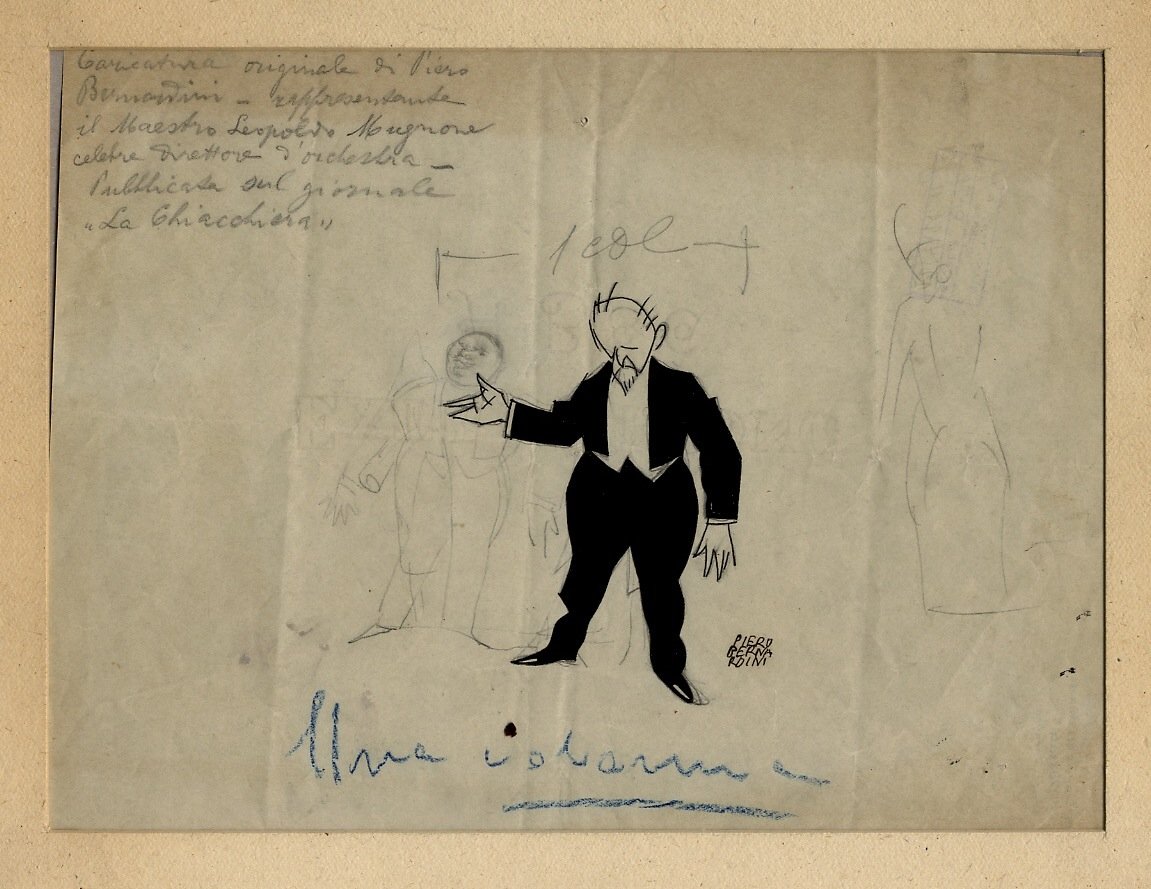 Caricatura originale di Piero
Bernardini – rappresentante
il Maestro Leopoldo Mugnone
celebre direttore d'orchestra –
Pubblicata sul giornale
„La Chiacchiera"
1 col
PIERO
BERNA
RDINI
Una colonna